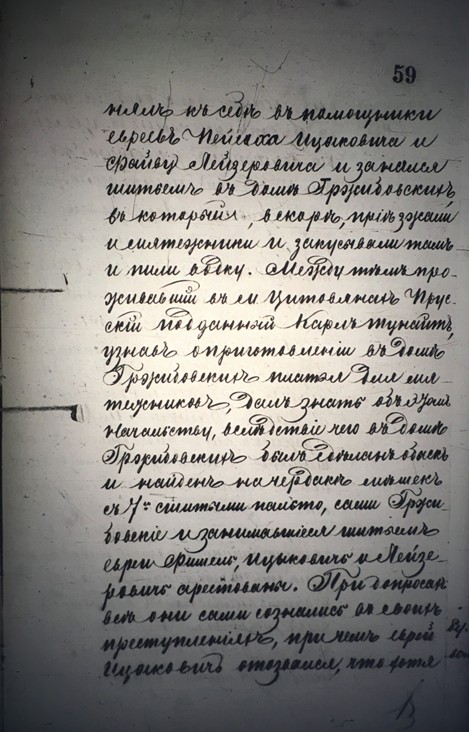 59
нялъ къ себѣ въ помощники
евреевъ Пейсаха Ицковича и
Файву Лейзеровича и занялся
шитьемъ въ домѣ Гржибовскихъ,
въ который, вскорѣ, пріѣзжали
и мятежники и закусывали тамъ
и пили водку. Между тѣмъ про-
живавшій въ м. Цитовянахъ Прус-
скій подданный Карлъ
узнавъ о приготовленіи въ домѣ
Гржибовскихъ платья для мя-
тежниковъ, далъ знать объ этомъ
начальству, вслѣдствіе чего въ домѣ
Гржибовскихъ былъ сдѣланъ обыскъ
и найденъ на чердакѣ мѣшекъ
съ 7ю сшитыми пальто, сами Гржи-
бовскіе и занимавшіеся шитьемъ
евреи Фишель, Ицыковичъ и Лейзе-
ровичъ арестованы. При допросахъ
всѣ они сами сознались въ своихъ
преступленіяхъ, при чемъ еврей
Ицковичъ отозвался, что хотя